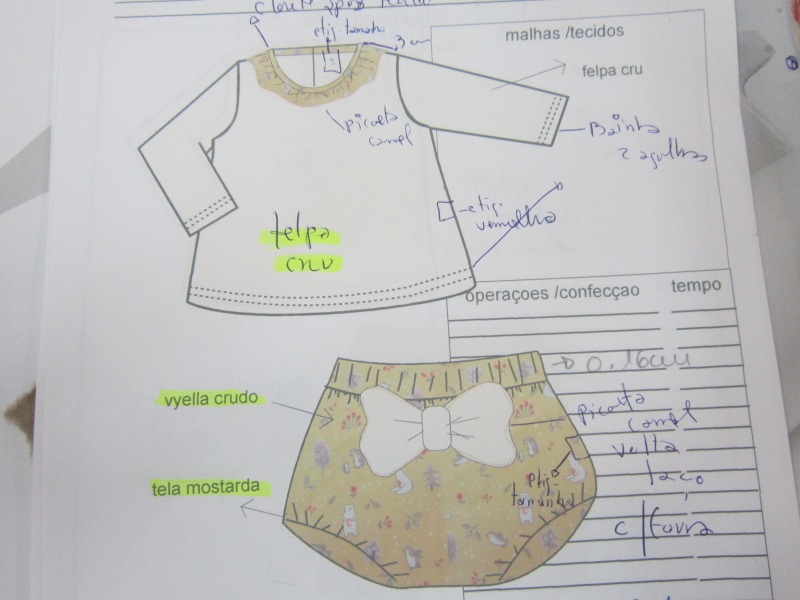 etiq. tamanho
3 cm
malhas /tecidos
felpa cru
picoeta
camel
Bainha
2 agulhas
etiq.
vermelha
felpa
cru
operaçoes /confecçao tempo
0.16cm
vyella crudo
picoeta
camel
volta
laço
etiq.
tamanho
tela mostarda
c/